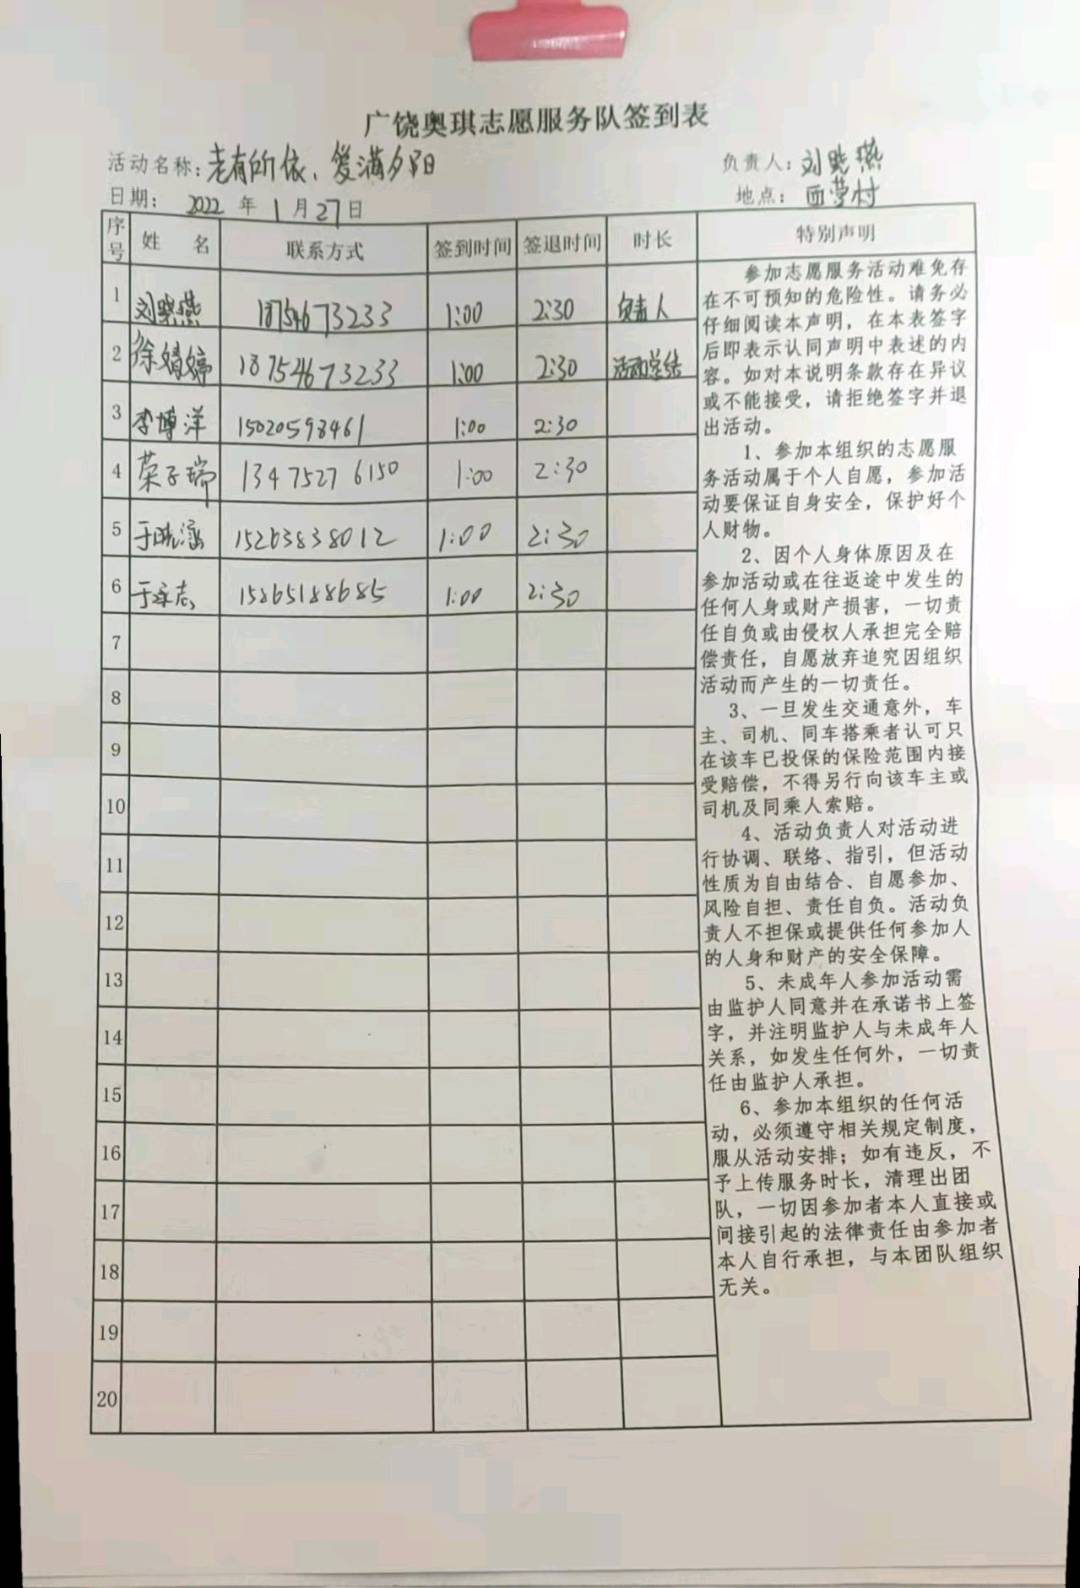 广饶奥琪志愿服务队签到表
活动名称：老有所依、爱满夕阳
负责人：刘晓燕
日期： 2022 年 1 月 27 日
地点：西营村
序号 姓 名 联系方式 签到时间 签退时间 时长 特别声明
1 刘晓燕 18754673233 1:00 2:30 负责人
2 徐婧婷 18754673233 1:00 2:30 活动总结
3 李博洋 15020598461 1:00 2:30
4 荣子瑞 13475276150 1:00 2:30
5 于晓涵 15263838012 1:00 2:30
6 于永志 15865188685 1:00 2:30
7
8
9
10
11
12
13
14
15
16
17
18
19
20
参加志愿服务活动难免存
在不可预知的危险性。请务必
仔细阅读本声明，在本表签字
后即表示认同声明中表述的内
容。如对本说明条款存在异议
或不能接受，请拒绝签字并退
出活动。
1、参加本组织的志愿服
务活动属于个人自愿，参加活
动要保证自身安全，保护好个
人财物。
2、因个人身体原因及在
参加活动或在往返途中发生的
任何人身或财产损害，一切责
任自负或由侵权人承担完全赔
偿责任，自愿放弃追究因组织
活动而产生的一切责任。
3、一旦发生交通意外，车
主、司机、同车搭乘者认可只
在该车已投保的保险范围内接
受赔偿，不得另行向该车主或
司机及同乘人索赔。
4、活动负责人对活动进
行协调、联络、指引，但活动
性质为自由结合、自愿参加、
风险自担、责任自负。活动负
责人不担保或提供任何参加人
的人身和财产的安全保障。
5、未成年人参加活动需
由监护人同意并在承诺书上签
字，并注明监护人与未成年人
关系，如发生任何外，一切责
任由监护人承担。
6、参加本组织的任何活
动，必须遵守相关规定制度，
服从活动安排；如有违反，不
予上传服务时长，清理出团
队，一切因参加者本人直接或
间接引起的法律责任由参加者
本人自行承担，与本团队组织
无关。